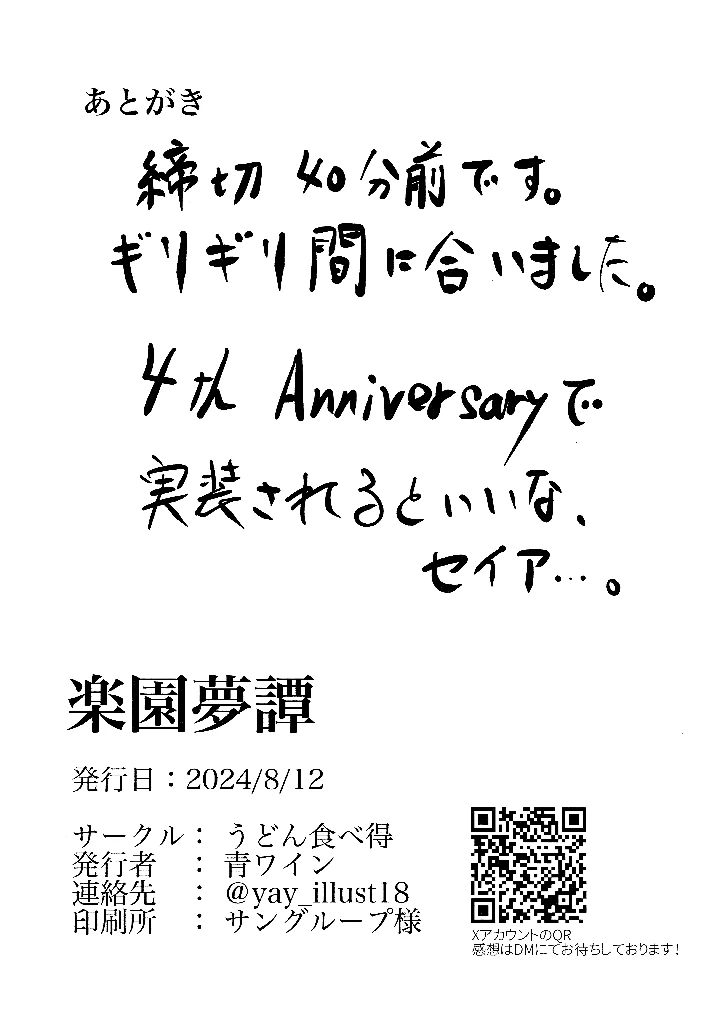 あとがき
締切 40分前です。
ギリギリ間に合いました。
4th Anniversaryで
実装されるといいな、
セイア…。
楽園夢譚
発行日：2024/8/12
サークル： うどん食べ得
発行者　： 青ワイン
連絡先　： @yay_illust18
印刷所　： サングループ様
XアカウントのQR
感想はDMにてお待ちしております！